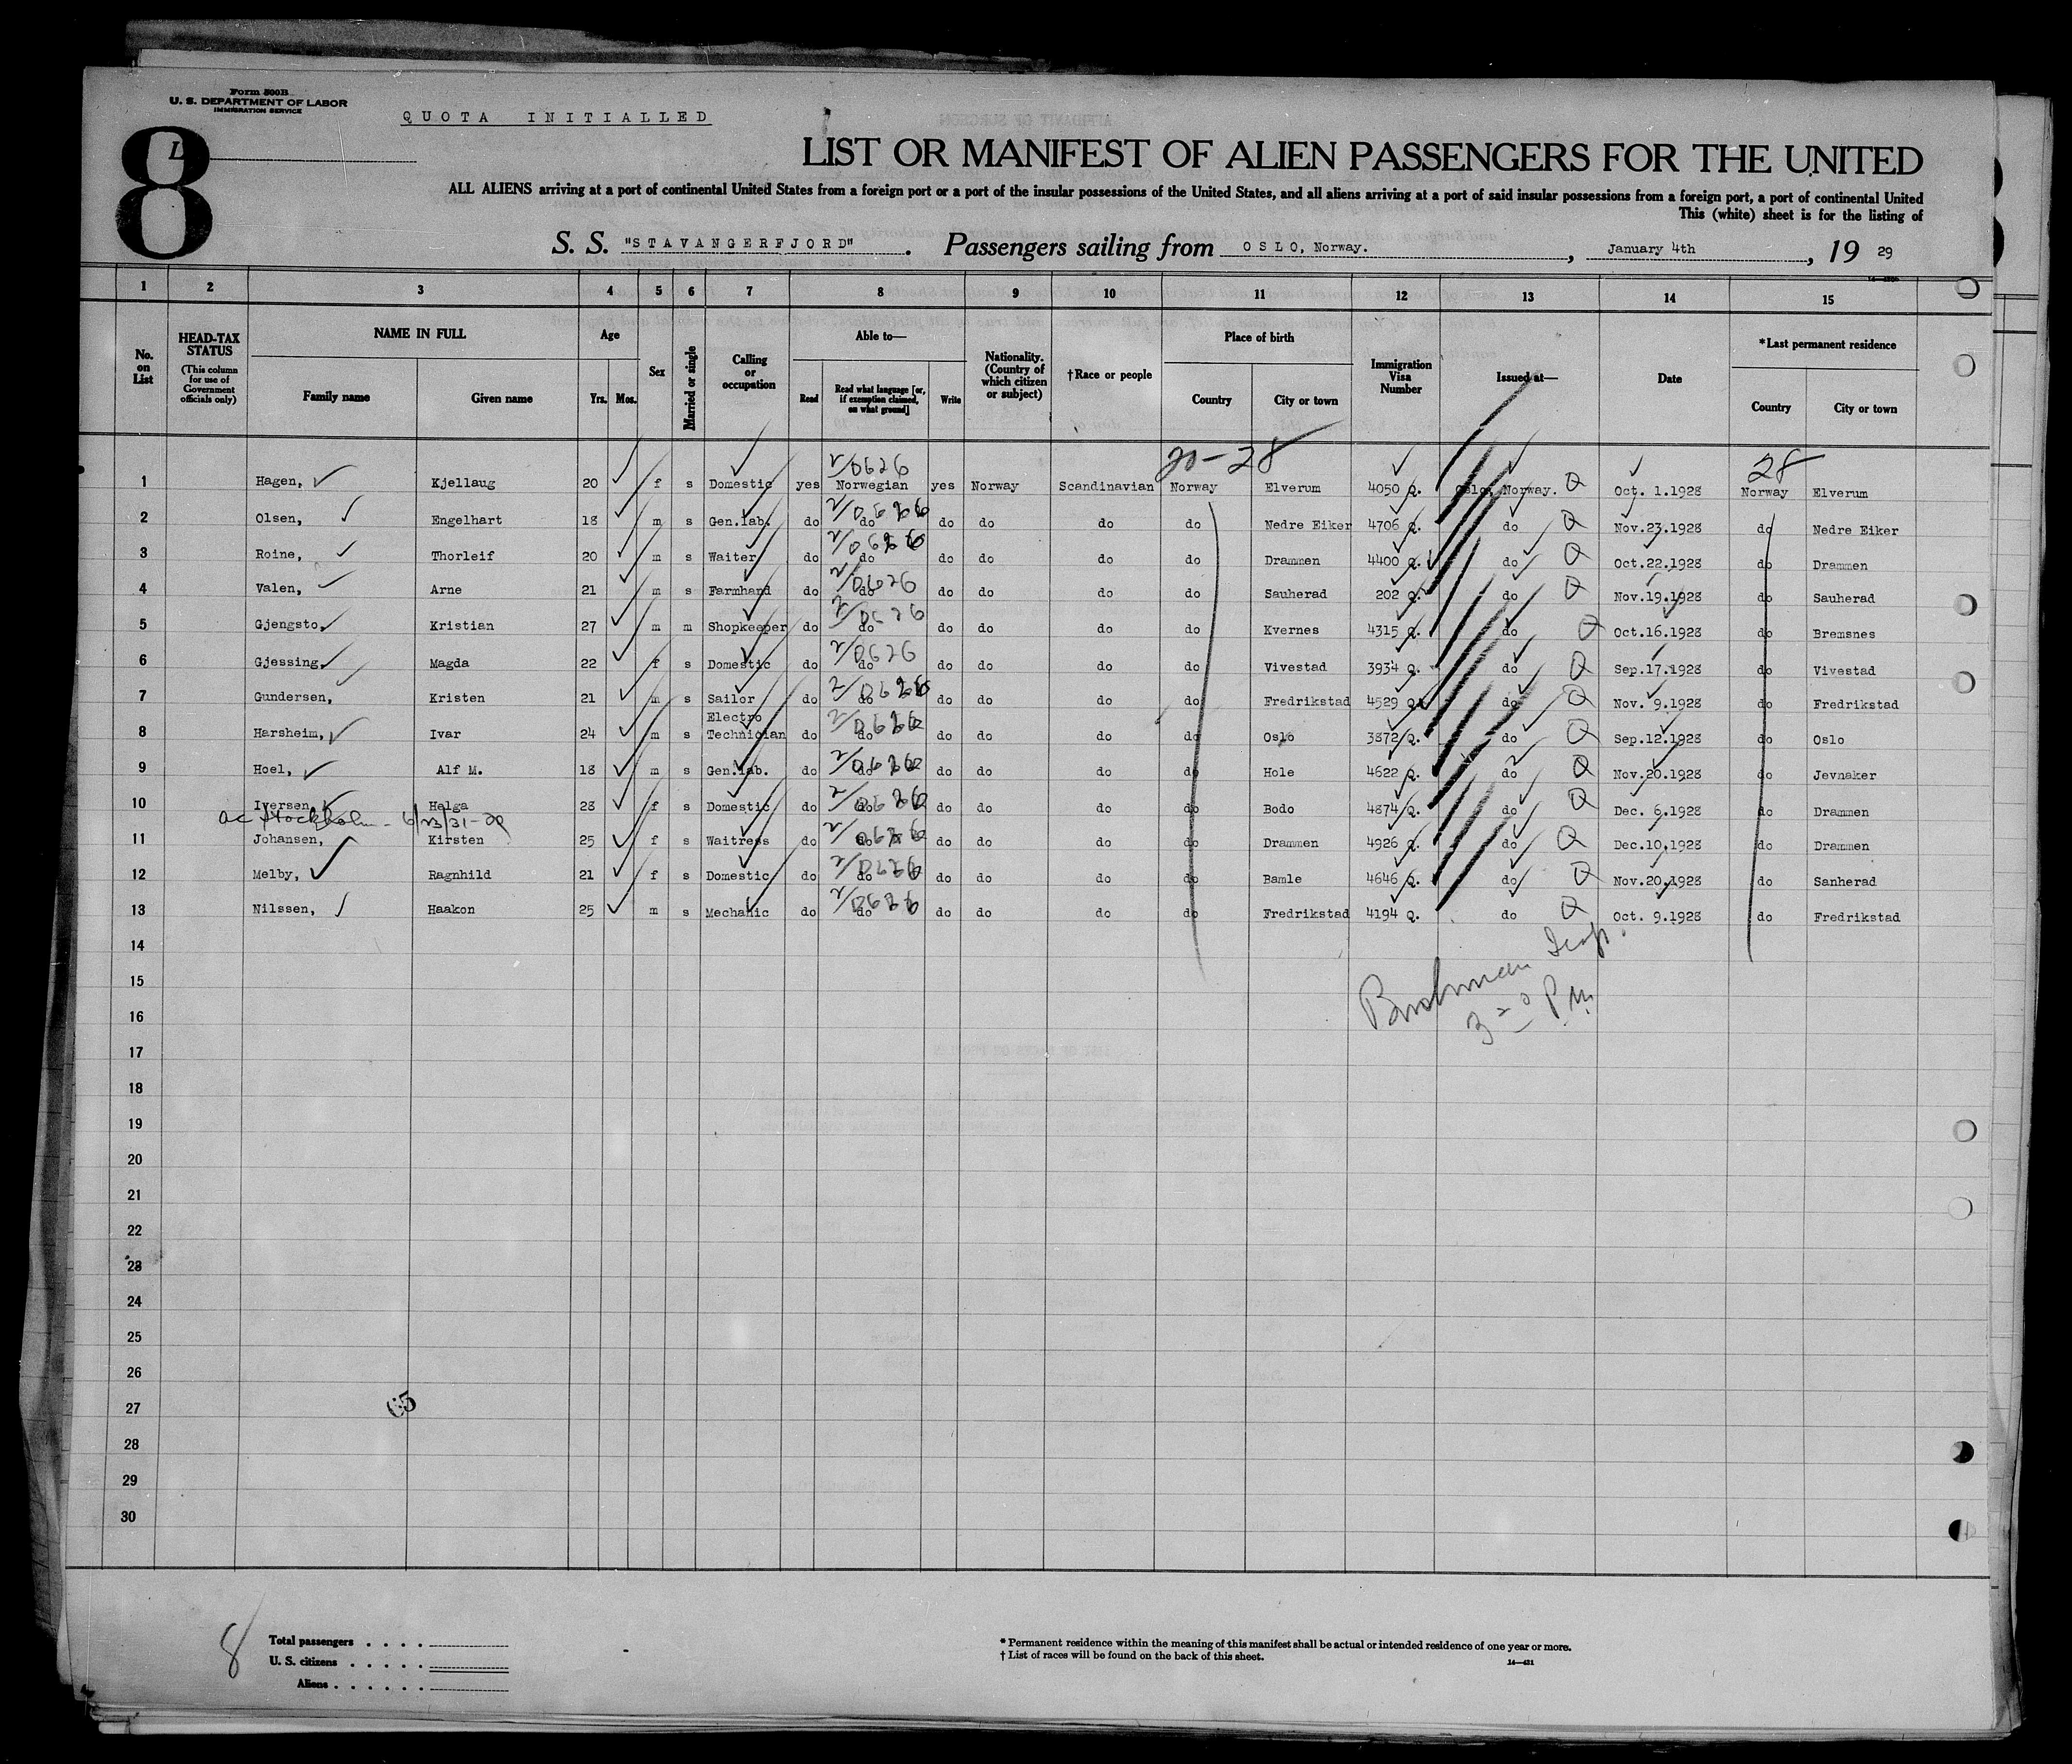 Form 500B
U. S. DEPARTMENT OF LABOR
IMMIGRATION SERVICE
QUOTA INITIALLED
8
L
LIST OR MANIFEST OF ALIEN PASSENGERS FOR THE UNITED
ALL ALIENS arriving at a port of continental United States from a foreign port or a port of the insular possessions of the United States, and all aliens arriving at a port of said insular possessions from a foreign port, a port of continental United
This (white) sheet is for the listing of
S. S. "STAVANGERFJORD". Passengers sailing from OSLO, Norway. , January 4th , 19 29
1 2 3 4 5 6 7 8 9 10 11 12 13 14 15
No. on List
HEAD-TAX STATUS (This column for use of Government officials only)
NAME IN FULL
Family name Given name
Age
Yrs. Mos.
Sex
Married or single
Calling or occupation
Able to—
Read Read what language [or, if exemption claimed, on what ground] Write
Nationality. (Country of which citizen or subject)
†Race or people
Place of birth
Country City or town
Immigration Visa Number
Issued at—
Date
*Last permanent residence
Country City or town
20-28 28
1 Hagen, Kjellaug 20 f s Domestic yes Norwegian yes Norway Scandinavian Norway Elverum 4050 Q. Oslo, Norway. Q Oct. 1.1928 Norway Elverum
2 Olsen, Engelhart 18 m s Gen.lab. do do do do do do Nedre Eiker 4706 Q. do Q Nov.23.1928 do Nedre Eiker
3 Roine, Thorleif 20 m s Waiter do do do do do do Drammen 4400 Q. do Q Oct.22.1928 do Drammen
4 Valen, Arne 21 m s Farmhand do do do do do do Sauherad 202 Q. do Q Nov.19.1928 do Sauherad
5 Gjengsto, Kristian 27 m m Shopkeeper do do do do do do Kvernes 4315 Q. do Q Oct.16.1928 do Bremsnes
6 Gjessing, Magda 22 f s Domestic do do do do do do Vivestad 3934 Q. do Q Sep.17.1928 do Vivestad
7 Gundersen, Kristen 21 m s Sailor do do do do do do Fredrikstad 4529 Q. do Q Nov. 9.1928 do Fredrikstad
8 Harsheim, Ivar 24 m s Electro Technician do do do do do do Oslo 3872 Q. do Q Sep.12.1928 do Oslo
9 Hoel, Alf M. 18 m s Gen.lab. do do do do do do Hole 4622 Q. do Q Nov.20.1928 do Jevnaker
10 Iversen, Helga 28 f s Domestic do do do do do do Bodo 4874 Q. do Q Dec. 6.1928 do Drammen
ac Stockholm - 6/23/31-
11 Johansen, Kirsten 25 f s Waitress do do do do do do Drammen 4926 Q. do Q Dec.10.1928 do Drammen
12 Melby, Ragnhild 21 f s Domestic do do do do do do Bamle 4646 Q. do Q Nov.20.1928 do Sanherad
13 Nilssen, Haakon 25 m s Mechanic do do do do do do Fredrikstad 4194 Q. do Q Oct. 9.1928 do Fredrikstad
14
15
16
17
18
19
20
21
22
23
24
25
26
27
28
29
30
8
Total passengers
U. S. citizens
Aliens
* Permanent residence within the meaning of this manifest shall be actual or intended residence of one year or more.
† List of races will be found on the back of this sheet.
14—421